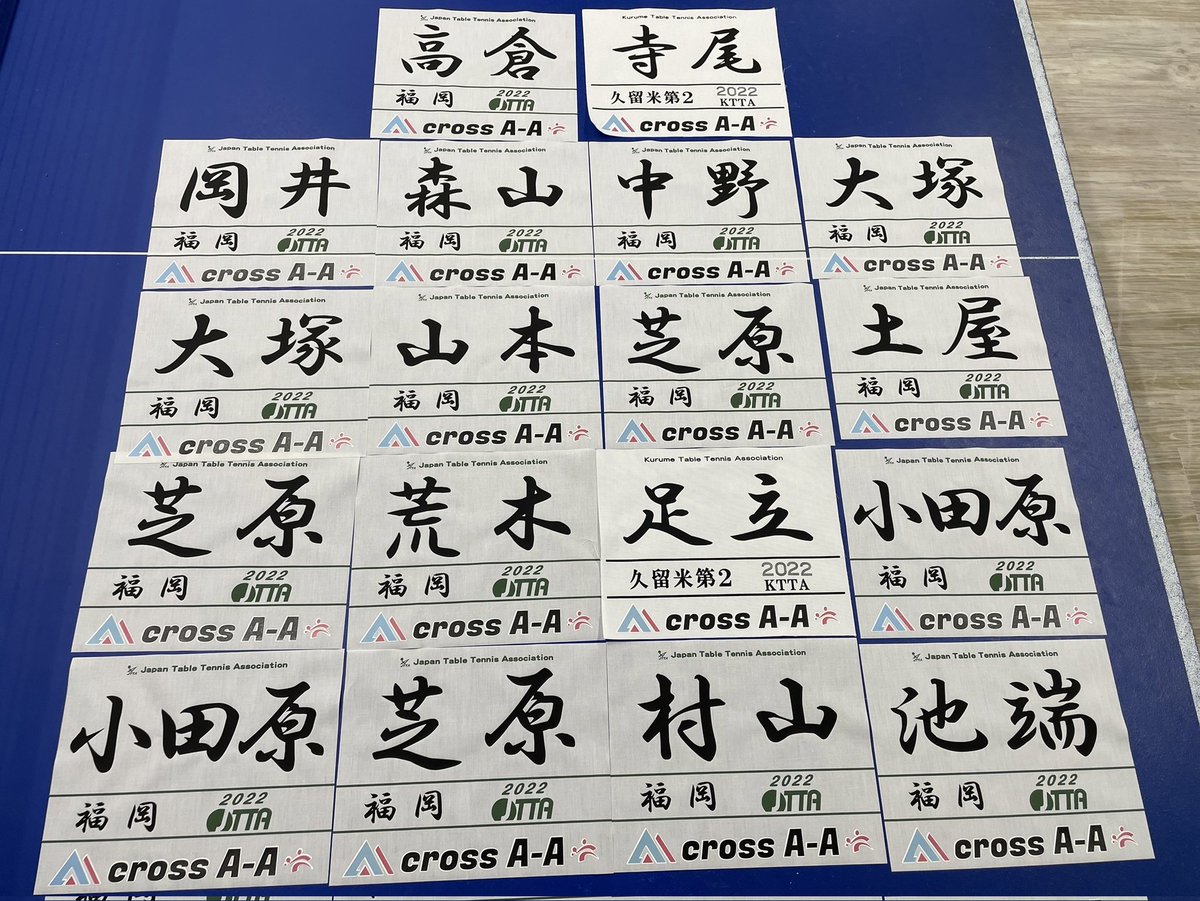 Japan Table Tennis Association
高倉
福岡 2022 JTTA
cross A-A
Kurume Table Tennis Association
寺尾
久留米第2 2022 KTTA
cross A-A
Japan Table Tennis Association
岡井
福岡 2022 JTTA
cross A-A
Japan Table Tennis Association
森山
福岡 2022 JTTA
cross A-A
Japan Table Tennis Association
中野
福岡 2022 JTTA
cross A-A
Japan Table Tennis Association
大塚
福岡 2022 JTTA
cross A-A
Japan Table Tennis Association
大塚
福岡 2022 JTTA
cross A-A
Japan Table Tennis Association
山本
福岡 2022 JTTA
cross A-A
Japan Table Tennis Association
芝原
福岡 2022 JTTA
cross A-A
Japan Table Tennis Association
土屋
福岡 2022 JTTA
cross A-A
Japan Table Tennis Association
芝原
福岡 2022 JTTA
cross A-A
Japan Table Tennis Association
荒木
福岡 2022 JTTA
cross A-A
Kurume Table Tennis Association
足立
久留米第2 2022 KTTA
cross A-A
Japan Table Tennis Association
小田原
福岡 2022 JTTA
cross A-A
Japan Table Tennis Association
小田原
福岡 2022 JTTA
cross A-A
Japan Table Tennis Association
芝原
福岡 2022 JTTA
cross A-A
Japan Table Tennis Association
村山
福岡 2022 JTTA
cross A-A
Japan Table Tennis Association
池端
福岡 2022 JTTA
cross A-A